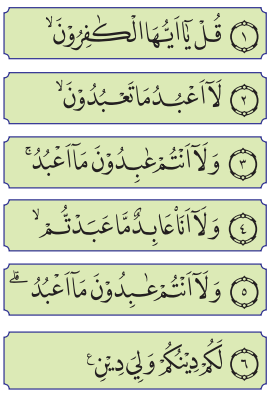 ١ قُلْ يٰٓاَيُّهَا الْكٰفِرُوْنَۙ
٢ لَآ اَعْبُدُ مَا تَعْبُدُوْنَۙ
٣ وَلَآ اَنْتُمْ عٰبِدُوْنَ مَآ اَعْبُدُۚ
٤ وَلَآ اَنَا۠ عَابِدٌ مَّا عَبَدْتُّمْۙ
٥ وَلَآ اَنْتُمْ عٰبِدُوْنَ مَآ اَعْبُدُۗ
٦ لَكُمْ دِيْنُكُمْ وَلِيَ دِيْنِ ࣖ